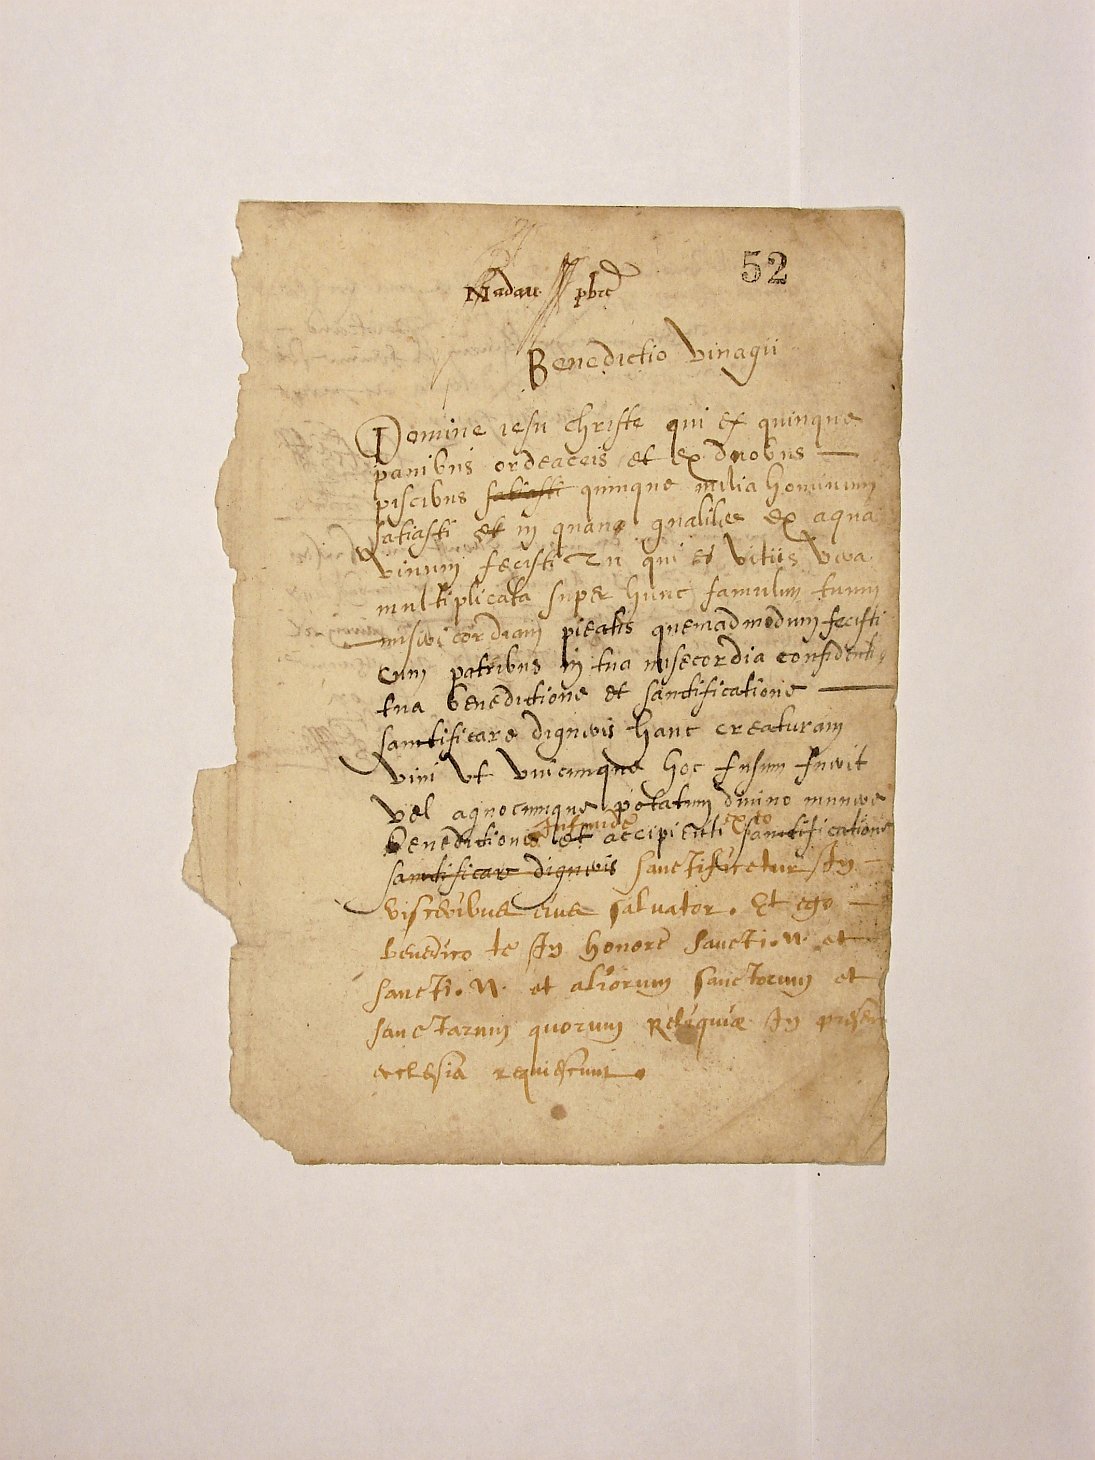 52
Nadau pbre
Benedictio vinagii
Domine iesu christe qui ex quinque
panibus ordeaceis et ex duobus
piscibus satiasti quinque milia hominum
satiasti et in galilee ex aqua
vinum fecisti Tu qui es vitiis viva
multiplicata super hunc famulum tuum
misericordiam pietatis quemadmodum fecisti
cum patribus in tua misecordia confidenti
tua benedictione et sanctificatione
sanctificare digneris hanc creaturam
vini ut unicumque hoc fusum fuerit
vel aquocumque potatum divino munere
ex eo
benedictione et accipienti sanctificatione
sanctificare digneris sanctificetur In
visceribus eius salvator. Et ego
benedico te In honore sancti. N. et
sancti. N. et aliorum sanctorum et
sanctarum quorum Reliquiae In presen
ecclesia requiescunt.